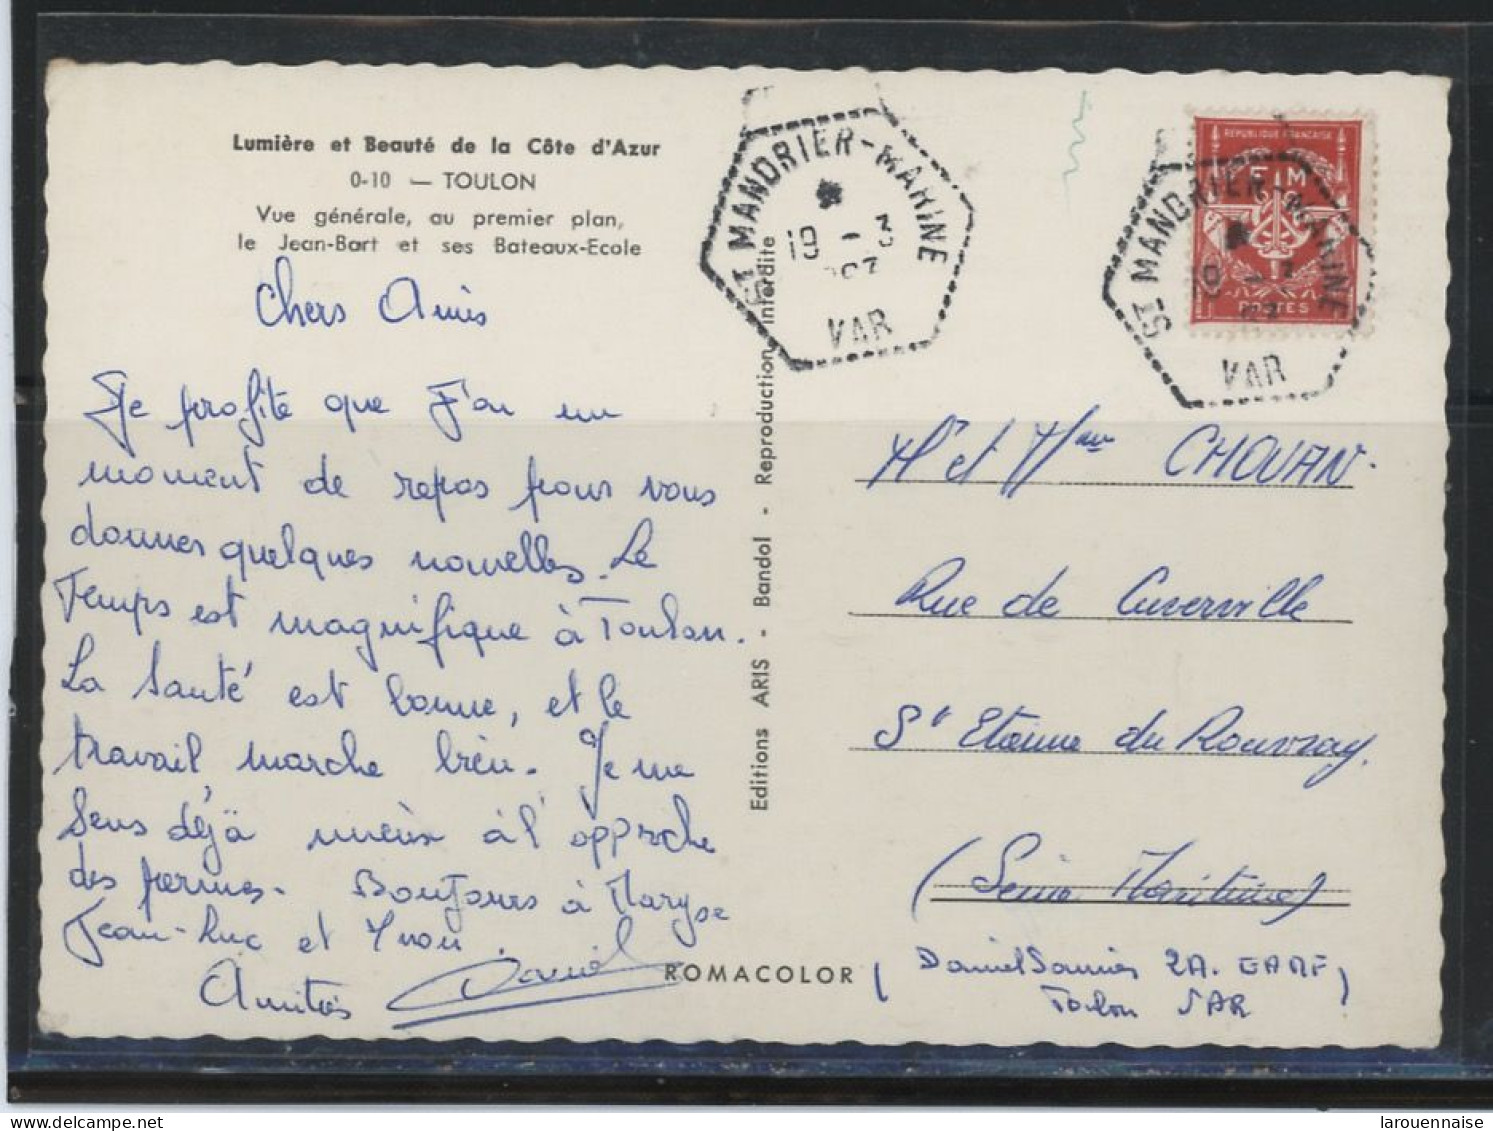 Lumière et Beauté de la Côte d'Azur
0-10 — TOULON
Vue générale, au premier plan,
le Jean-Bart et ses Bateaux-Ecole
Chers Amis
Je profite que J'ai un
moment de repos pour vous
donner quelques nouvelles. Le
Temps est magnifique à Toulon.
La Santé est bonne, et le
travail marche bien. Je me
Sens déjà mieux à l'approche
des perms. Bonjours à Maryse
Jean-Luc et Yvon.
Amitiés Daniel
Editions ARIS - Bandol - Reproduction interdite
ROMACOLOR
ST MANDRIER-MARINE
19 - 3
VAR
REPUBLIQUE FRANÇAISE
F M
POSTES
ST MANDRIER-MARINE
19 - 3
VAR
Mr et Mme CHOUAN.
Rue de Cuverville
St Etienne du Rouvray.
(Seine Maritime)
(Daniel 2A. GAMF)
Toulon VAR
delcampe.net
larouennaise